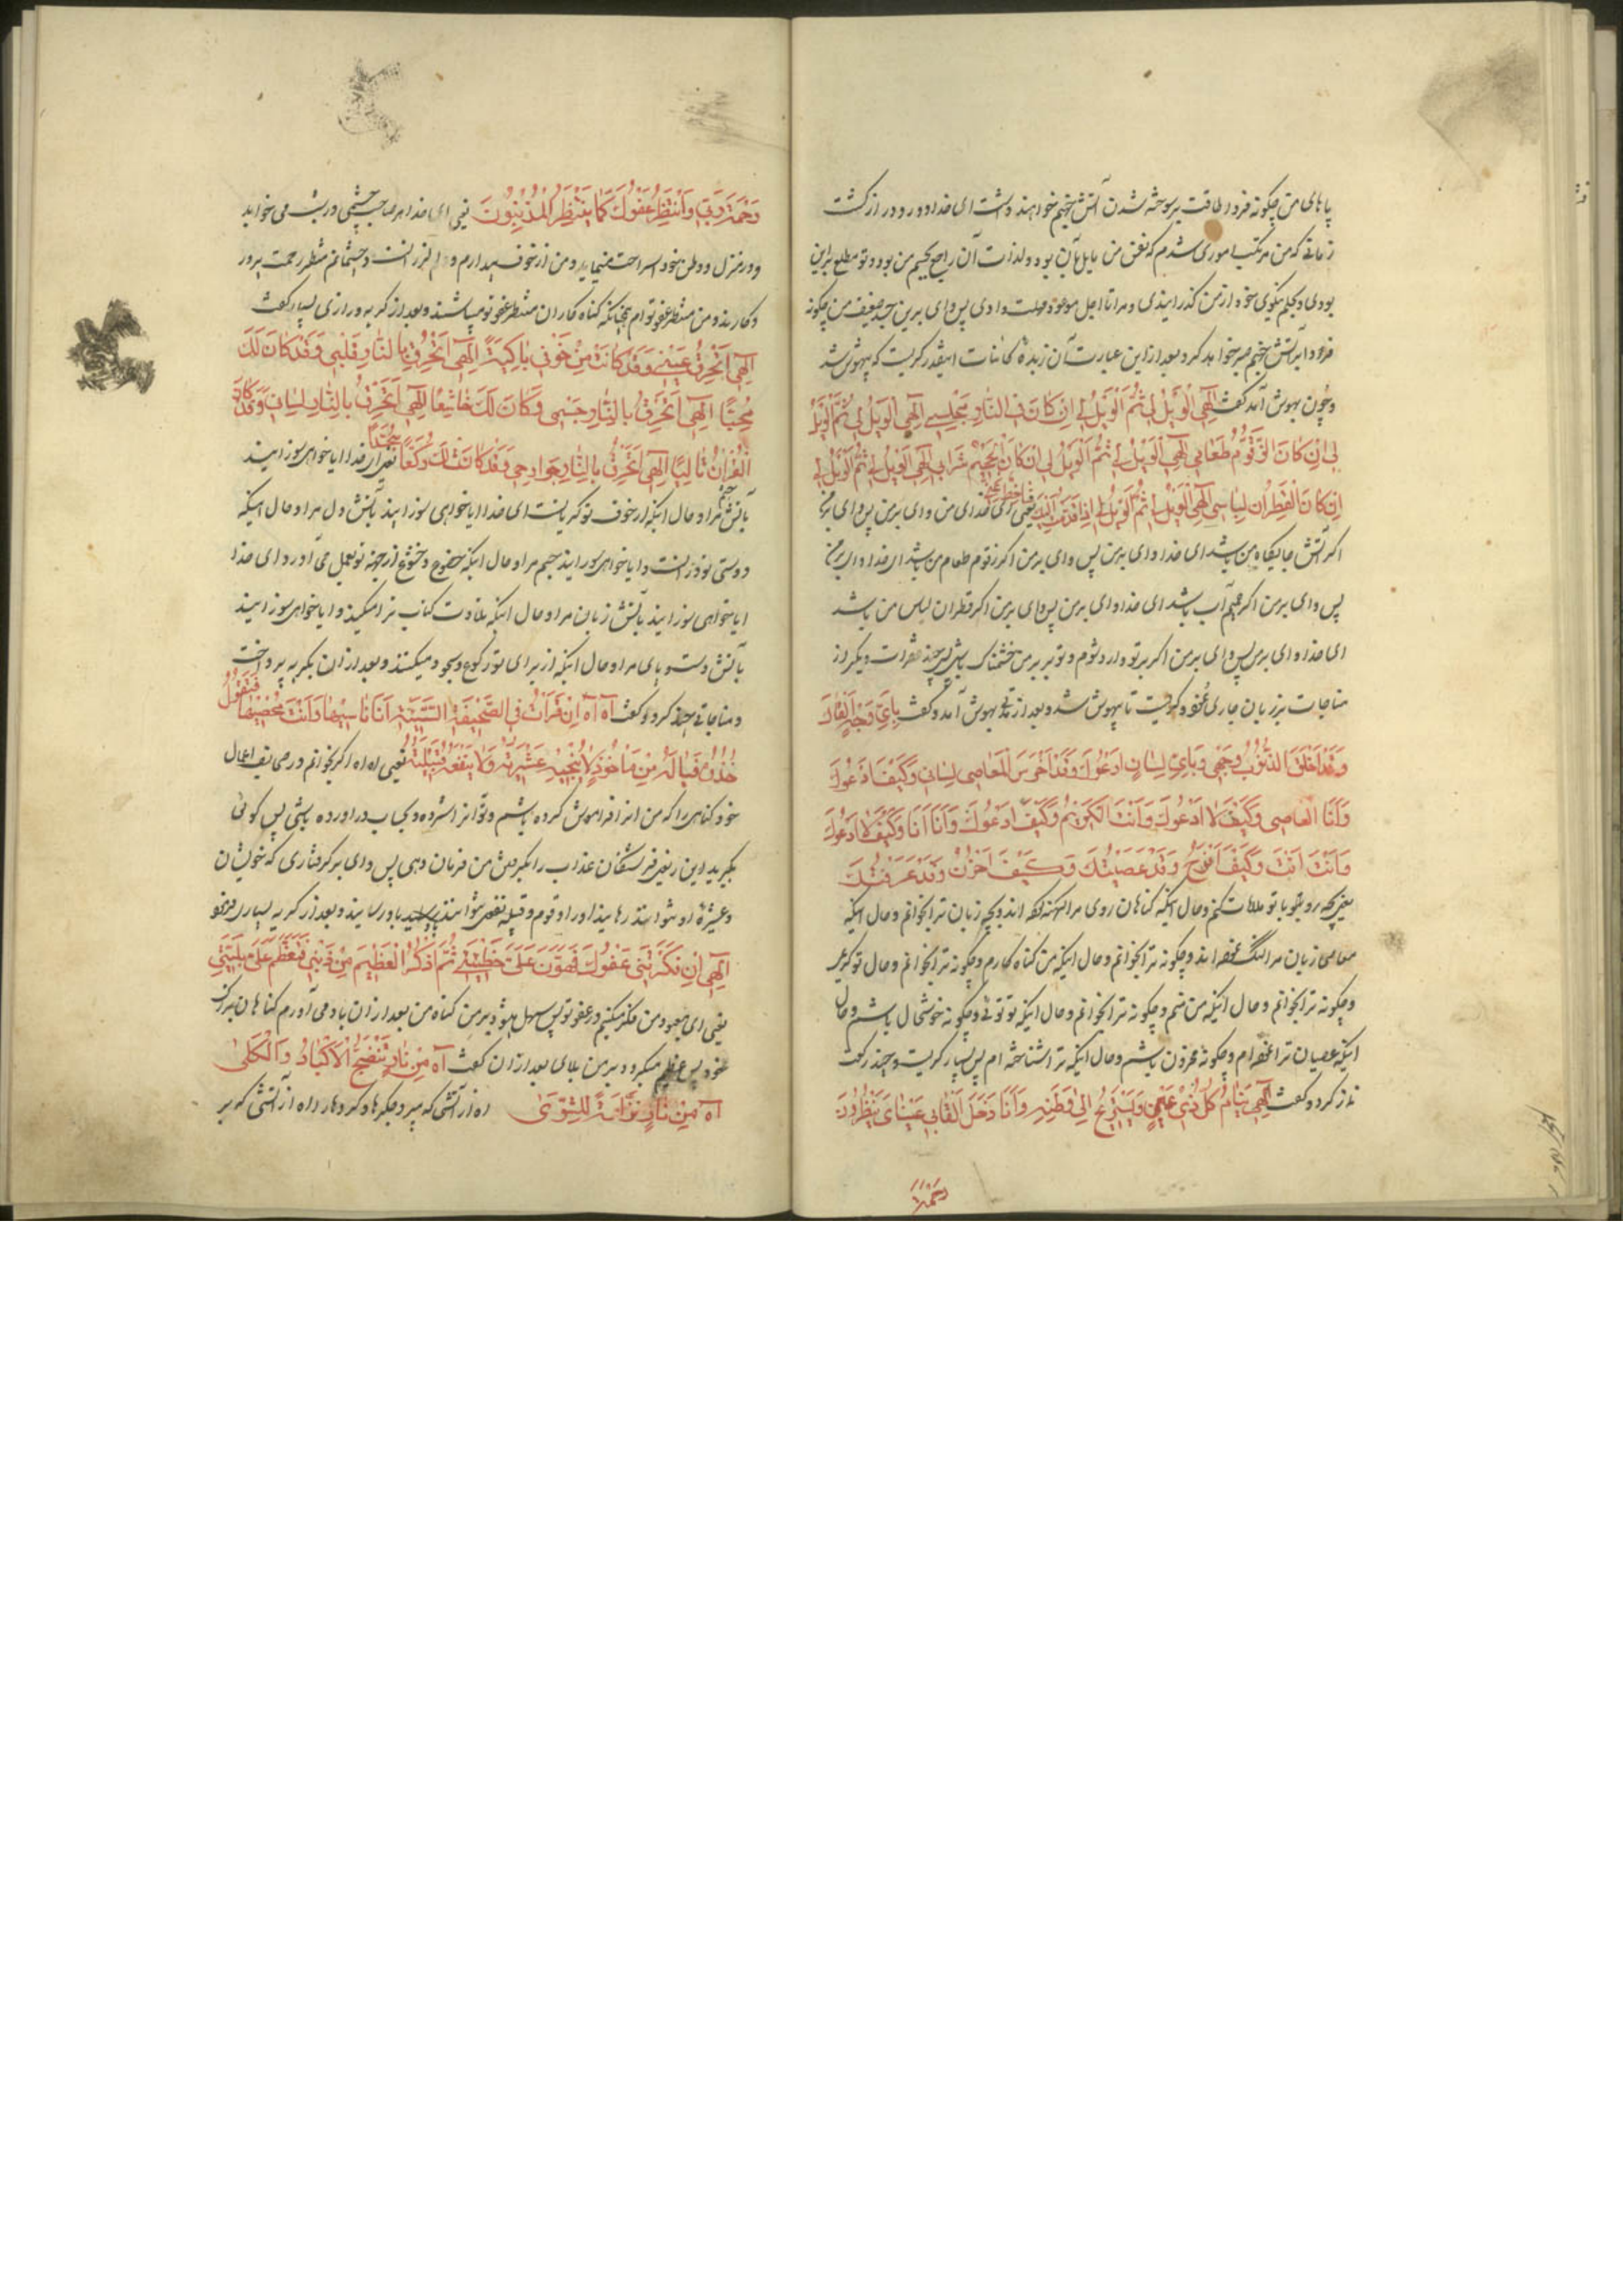 پاهای من چگونه فردا طاقت بر سوخته شدن آتش جهنم خواهند داشت ای خدا دور و دراز گذشت
زمانی که من مرتکب اموری شدم که نفس من مایل بآن بود و لذات آن راجع بجسم من بود و تو مطلع براین
بودی و بحلم نیکوی خود از من گذرانیدی و مرا تا اجل موعود مهلت دادی پس وای برین جسد ضعیف من چگونه
فردا بر آتش جهنم صبر خواهد کرد بعد از این عبارت آن زبدهٔ کائنات اینقدر گریست که بیهوش شد
و چون بهوش آمد گفت اِلٰهِی اَلْوَیْلُ لِی ثُمَّ الْوَیْلُ لِی اِنْ کَانَ فِی النَّارِ مَجْلِسِی اِلٰهِی اَلْوَیْلُ لِی ثُمَّ الْوَیْلُ
لِی اِنْ کَانَ الزَّقُّومُ طَعَامِی اِلٰهِی اَلْوَیْلُ لِی ثُمَّ الْوَیْلُ لِی اِنْ کَانَ الْحَمِیْمُ شَرَابِی اِلٰهِی اَلْوَیْلُ لِی ثُمَّ الْوَیْلُ لِی
اِنْ کَانَ الْقَطِرَانُ لِبَاسِی اِلٰهِی اَلْوَیْلُ لِی ثُمَّ الْوَیْلُ لِی اِذَا قَدِمْتُ اِلَیْکَ یعنی ای خدای من وای برمن پس وای برمن
اگر آتش جایگاه من باشد ای خدا وای برمن پس وای برمن اگر زقوم طعام من باشد ای خدا وای برمن
پس وای برمن اگر حمیم آب باشد ای خدا وای برمن پس وای برمن اگر قطران لباس من باشد
ای خدا وای برمن پس وای برمن اگر بر تو وارد شوم و تو بر من خشمناک باشی پس چند فقرات دیگر از
مناجات بر زبان جاری نمود و گریست تا بیهوش شد و بعد از مدتی بهوش آمد و گفت بِاَیِّ وَجْهٍ اَلْقَاکَ
وَقَدْ اَخْلَقَ الذُّنُوْبُ وَجْهِی وَبِاَیِّ لِسَانٍ اَدْعُوْکَ وَقَدْ اَخْرَسَ الْمَعَاصِی لِسَانِی وَکَیْفَ اَدْعُوْکَ
وَاَنَا الْعَاصِی وَکَیْفَ لَا اَدْعُوْکَ وَاَنْتَ الْکَرِیْمُ وَکَیْفَ اَدْعُوْکَ وَاَنَا اَنَا وَکَیْفَ لَا اَدْعُوْکَ
وَاَنْتَ اَنْتَ وَکَیْفَ اَفْرَحُ وَقَدْ عَصَیْتُکَ وَکَیْفَ اَحْزَنُ وَقَدْ عَرَفْتُکَ
یعنی بچه رو بتو با تو ملاقات کنم و حال آنکه گناهان روی مرا کهنه کرده‌اند و بچه زبان ترا بخوانم و حال آنکه
معاصی زبان مرا گنگ نموده‌اند و چگونه ترا بخوانم و حال اینکه من گناه کارم و چگونه ترا نخوانم و حال تو کریمی
و چگونه ترا بخوانم و حال اینکه من منم و چگونه ترا نخوانم و حال اینکه تو توئی و چگونه خوشحال باشم و حال
اینکه عصیان ترا نموده‌ام و چگونه محزون باشم و حال اینکه ترا شناخته‌ام پس بسیار گریست و چند رکعت
نماز کرد و گفت اِلٰهِی یَنَامُ کُلُّ ذِیْ عَیْنٍ وَیَسْتَرِیْحُ اِلیٰ وَطَنِهِ وَاَنَا وَجِلُ الْقَلْبِ عَیْنَایَ یَنْظُرُوْنَ
رَحْمَةَ
رَحْمَةَ رَبِّی وَاَنْتَظِرُ عَفْوَکَ کَمَا یَنْتَظِرُ الْمُذْنِبُوْنَ یعنی ای خدا هر صاحب چشمی در شب می خوابد
و در منزل و وطن خود استراحت مینماید و من از خوف بیدارم و دلم لرزانست و چشمانم منتظر رحمت پرور
دگارند و من منتظر عفو توام چنانکه گناه کاران منتظر عفو تو میباشند و بعد از گریه و زاری بسیار گفت
اِلٰهِی اَتُحْرِقُ عَیْنِی وَقَدْ کَانَتْ مِنْ خَوْفِی بَاکِیَةً اِلٰهِی اَتُحْرِقُ بِالنَّارِ قَلْبِی وَقَدْ کَانَ لَکَ
مُحِبًّا اِلٰهِی اَتُحْرِقُ بِالنَّارِ جِسْمِی وَکَانَ لَکَ خَاشِعًا اِلٰهِی اَتُحْرِقُ بِالنَّارِ لِسَانِی وَقَدْ کَانَ
الْقُرْاٰنَ تَالِیًا اِلٰهِی اَتُحْرِقُ بِالنَّارِ جَوَارِحِی وَقَدْ کَانَتْ لَکَ رُکَّعًا سُجَّدًا یعنی ای خدا ایا خواهی سوزانید
بآتش چشم مرا و حال اینکه از خوف تو گریانست ای خدا ایا خواهی سوزانید بآتش دل مرا و حال اینکه
دوستی تو در آنست و ایا خواهی سوزانید جسم مرا و حال اینکه خضوع و خشوع از جهة تو بعمل می آورد ای خدا
ایا خواهی سوزانید بآتش زبان مرا و حال اینکه تلاوت کتاب ترا میکند و ایا خواهی سوزانید
بآتش دست و پای مرا و حال اینکه از برای تو رکوع و سجود میکنند و بعد از ان بگریه پرداخت
و مناجاتی چند کرد و گفت آه آه اِنْ قَرَأْتُ فِی الصَّحِیْفَةِ السَّیِّئَةِ اَنَا نَاسِیْهَا وَاَنْتَ مُحْصِیْهَا فَتَقُوْلُ
خُذُوْهُ فَیَالَهُ مِنْ مَأْخُوْذٍ لَا تُنْجِیْهِ عَشِیْرَتُهُ وَلَا یَنْفَعُهُ قَبِیْلَتُهُ یعنی اه اه اگر بخوانم در صحایف اعمال
خود گناهی را که من انرا فراموش کرده باشم و تو انرا شمرده و بحساب در آورده باشی پس گوئی
بگیرید این را یعنی فرشتگان عذاب را بگرفتن من فرمان دهی پس وای بر گرفتاری که خویشان
و عشیرهٔ او نتوانند رهانید او را و قوم و قبیله نفعی نتوانند باو رسانید و بعد از گریه بسیار فرمود
اِلٰهِی اِنْ فَکَّرْتُ فِی عَفْوِکَ فَهَوَّنَ عَلَیَّ خَطِیْئَتِی ثُمَّ اَذْکُرُ الْعَظِیْمَ مِنْ ذَنْبِی فَتَعْظُمُ عَلَیَّ بَلِیَّتِی
یعنی ای معبود من فکر میکنم در عفو تو پس سهل میشود بر من گناه من بعد از ان یاد می آورم گناهان بزرگ
خود پس عظیم میگردد بر من بلای بعد از ان گفت آه مِنْ نَارٍ تُنْضِجُ الْاَکْبَادَ وَالْکُلیٰ
آه مِنْ نَارٍ نَزَّاعَةً لِلشَّوَیٰ اه از آتشی که میپزد جگرها و گرده‌ها را اه از آتشی که بر